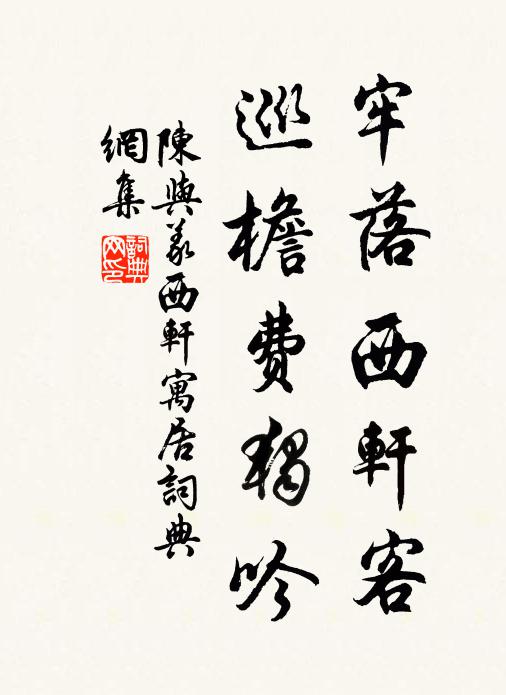 牢落西軒客
巡檐費獨吟
陳與義西軒寓居詞典
網集
詞典
网印